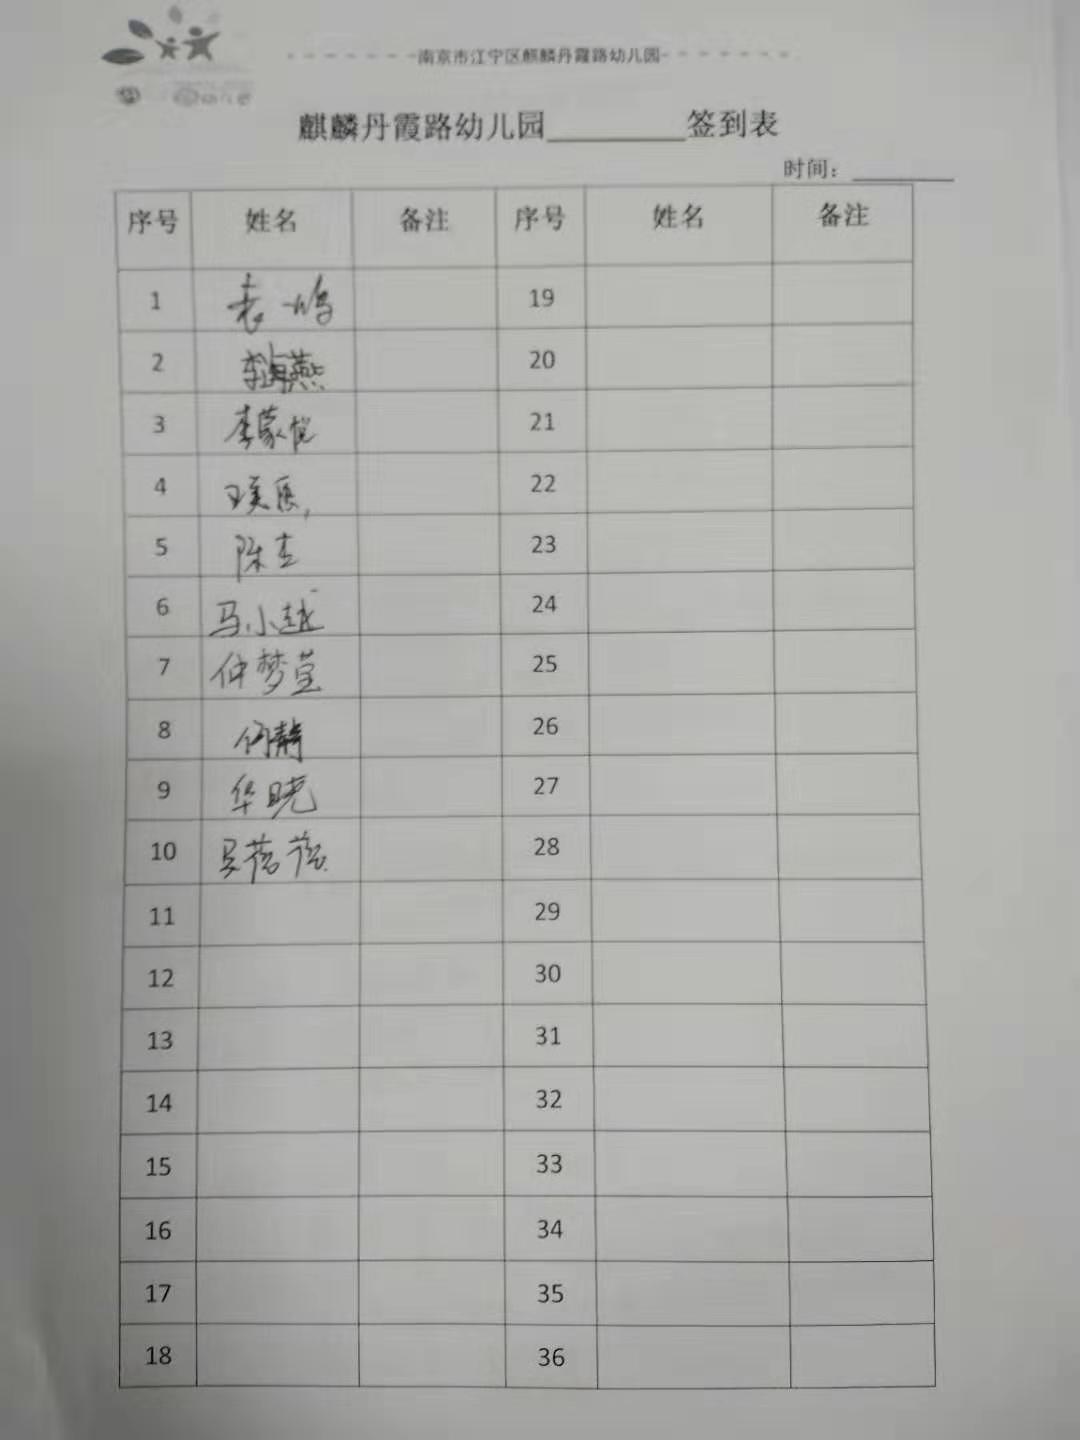 南京市江宁区麒麟丹霞路幼儿园
麒麟丹霞路幼儿园________签到表
时间：________
序号 姓名 备注 序号 姓名 备注
1 袁一鸣 19
2 李海燕 20
3 李蒙悦 21
4 22
5 陈 24
6 马小越 24
7 仲梦莹 25
8 何静 26
9 华晓 27
10 吴蓓蓓 28
11 29
12 30
13 31
14 32
15 33
16 34
17 35
18 36